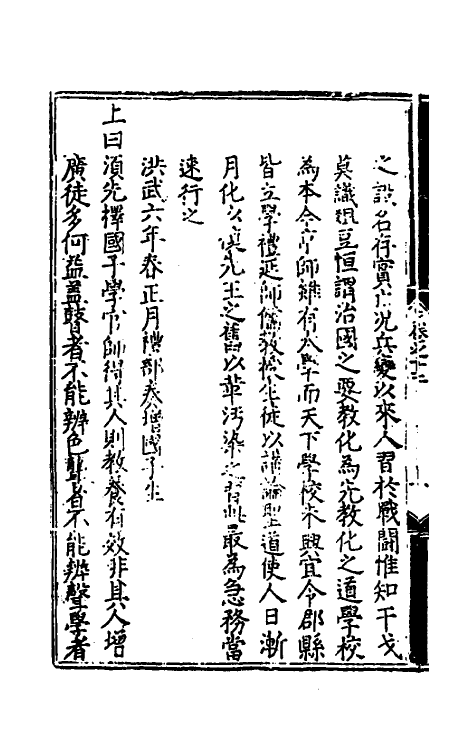 之設名存實亡况兵變以來人習於戰鬪惟知干戈
莫識俎豆恒謂治國之要教化為先教化之道學校
為本今京師雖有太學而天下學校未興宜令郡縣
皆立學禮延師儒教授生徒以講論聖道使人日漸
月化以復先王之舊以革汚染之習此最為急務當
速行之
洪武六年春正月禮部奏增國子生
上曰須先擇國子學官師得其人則教養有效非其人增
廣徒多何益蓋瞽者不能辨色聾者不能辨聲學者